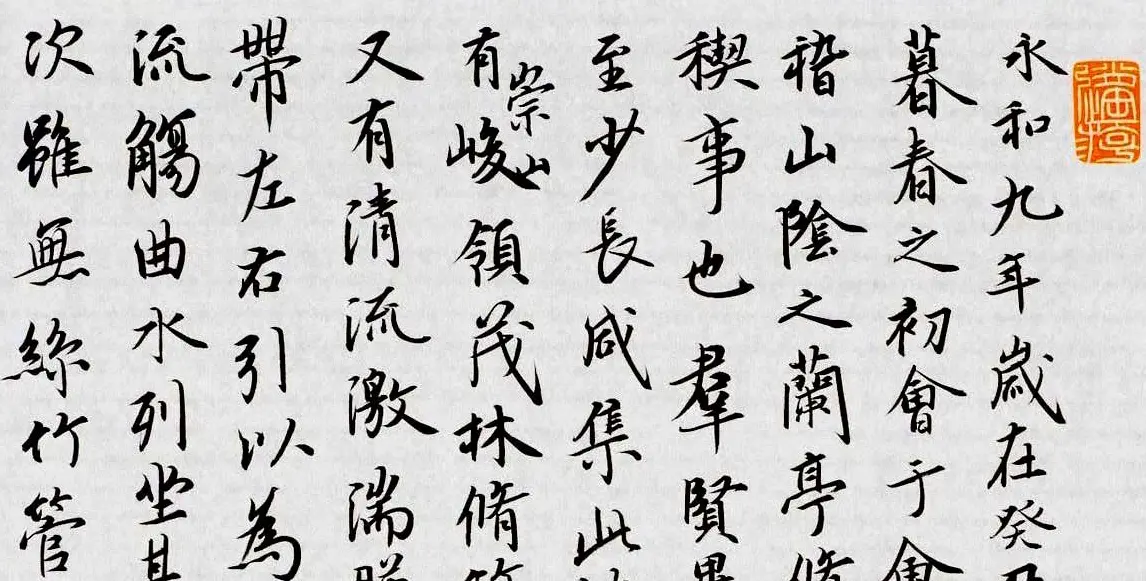 永和九年歲在癸丑
暮春之初會于會
稽山陰之蘭亭脩
稧事也羣賢畢
至少長咸集此
有崇山峻領茂林脩
又有清流激湍
帶左右引以為
流觴曲水列坐其
次雖無絲竹管